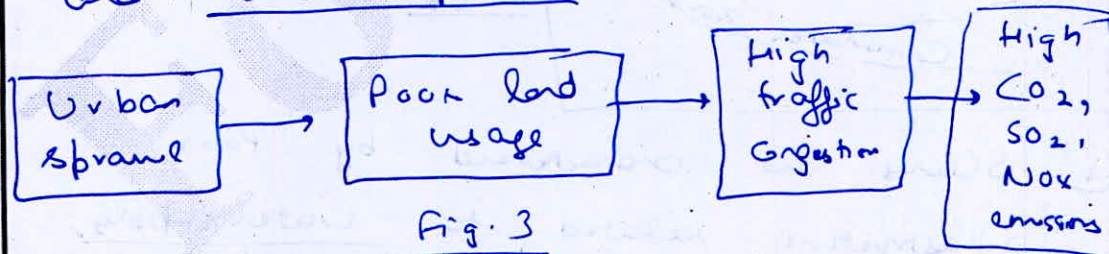 Urban
sprawl
Poor land
usage
High
traffic
Congestion
High
CO2,
SO2,
NOx
emissions
Fig. 3